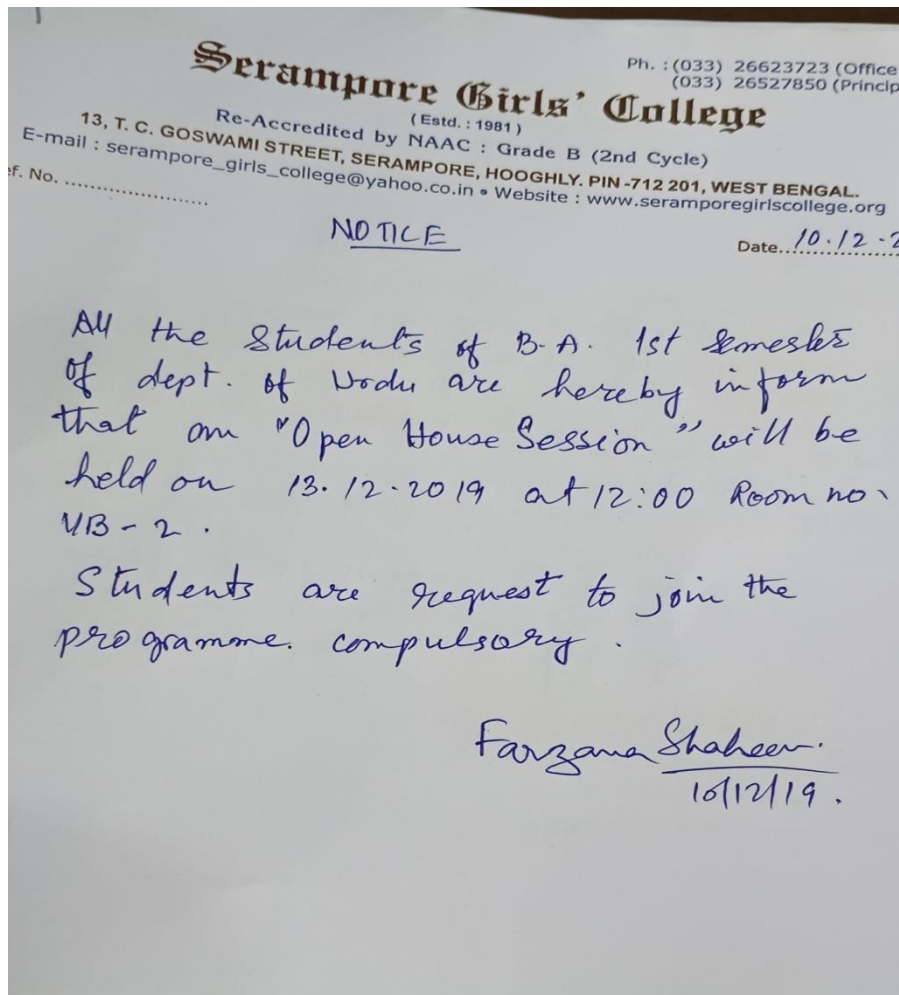 Serampore Girls' College
Ph. : (033) 26623723 (Office
(033) 26527850 (Princip
(Estd. : 1981)
Re-Accredited by NAAC : Grade B (2nd Cycle)
13, T. C. GOSWAMI STREET, SERAMPORE, HOOGHLY. PIN -712 201, WEST BENGAL.
E-mail : serampore_girls_college@yahoo.co.in • Website : www.seramporegirlscollege.org
ef. No. ........................
NOTICE
Date..10.12.2
All the Students of B.A. 1st Semester
of dept. of Urdu are hereby inform
that an "Open House Session" will be
held on 13.12.2019 at 12:00 Room no.
- 2.
Students are request to join the
programme. compulsory.
Farzana Shaheen.
10/12/19.